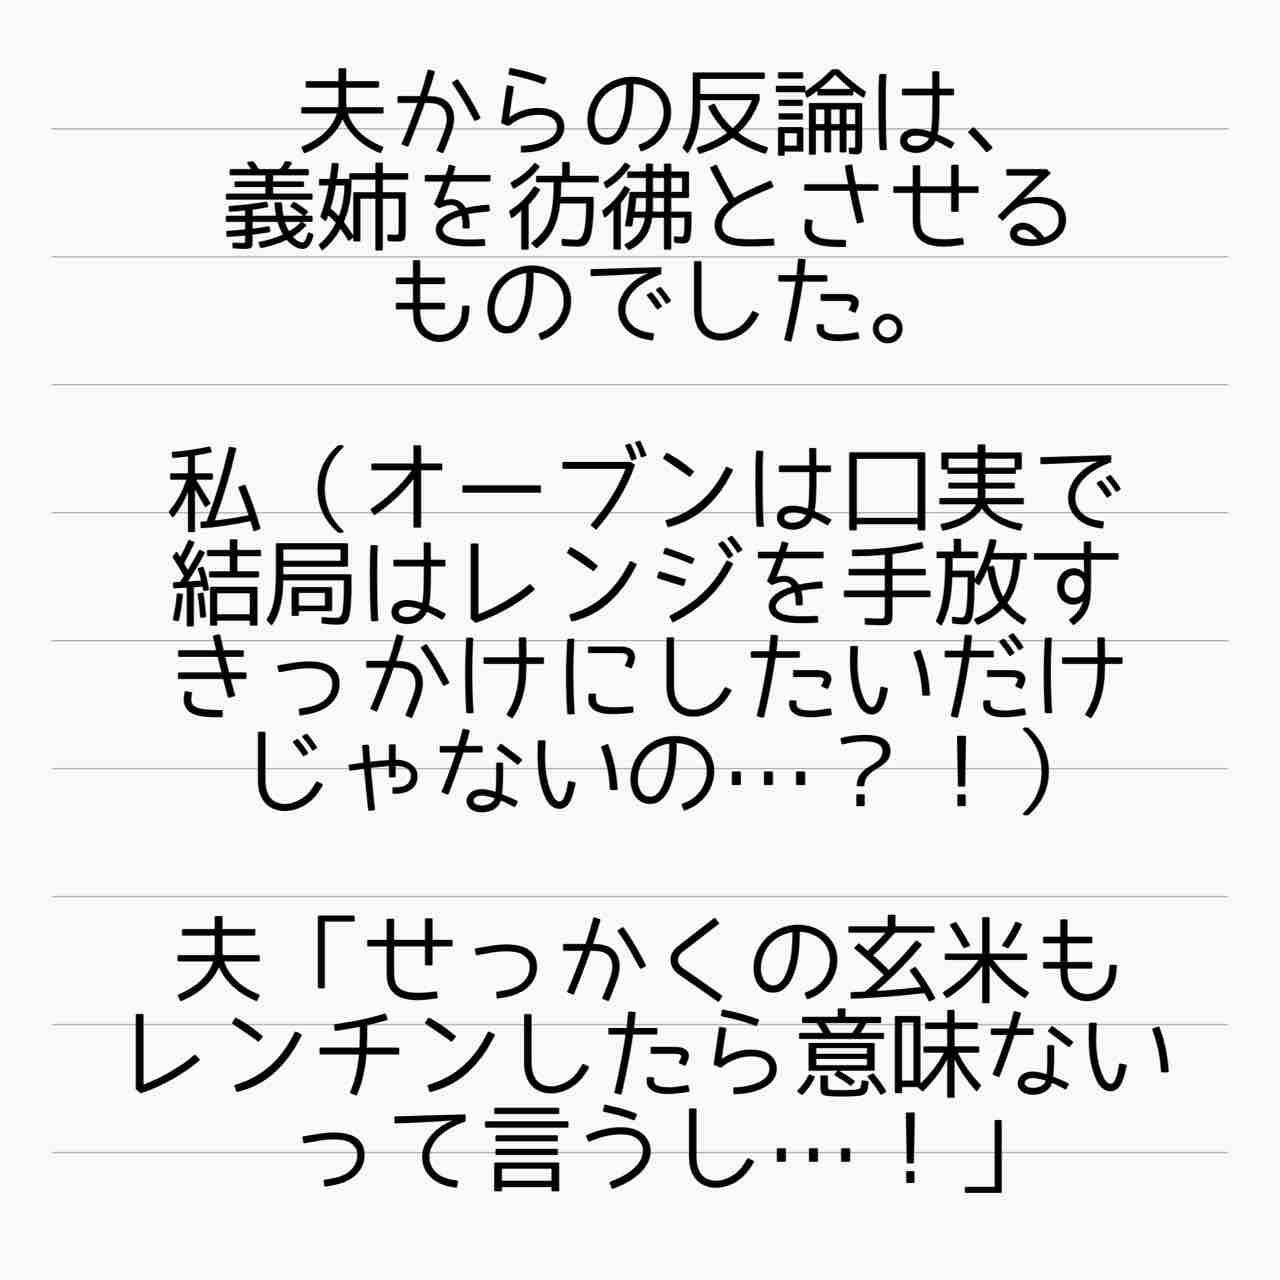 夫からの反論は、
義姉を彷彿とさせる
ものでした。
私（オーブンは口実で
結局はレンジを手放す
きっかけにしたいだけ
じゃないの…？！）
夫「せっかくの玄米も
レンチンしたら意味ない
って言うし…！」